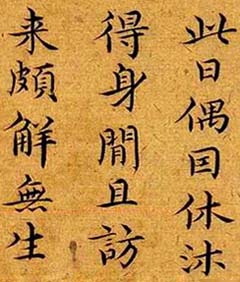 此日偶囙休沐
得身閒且訪
来頗解無生